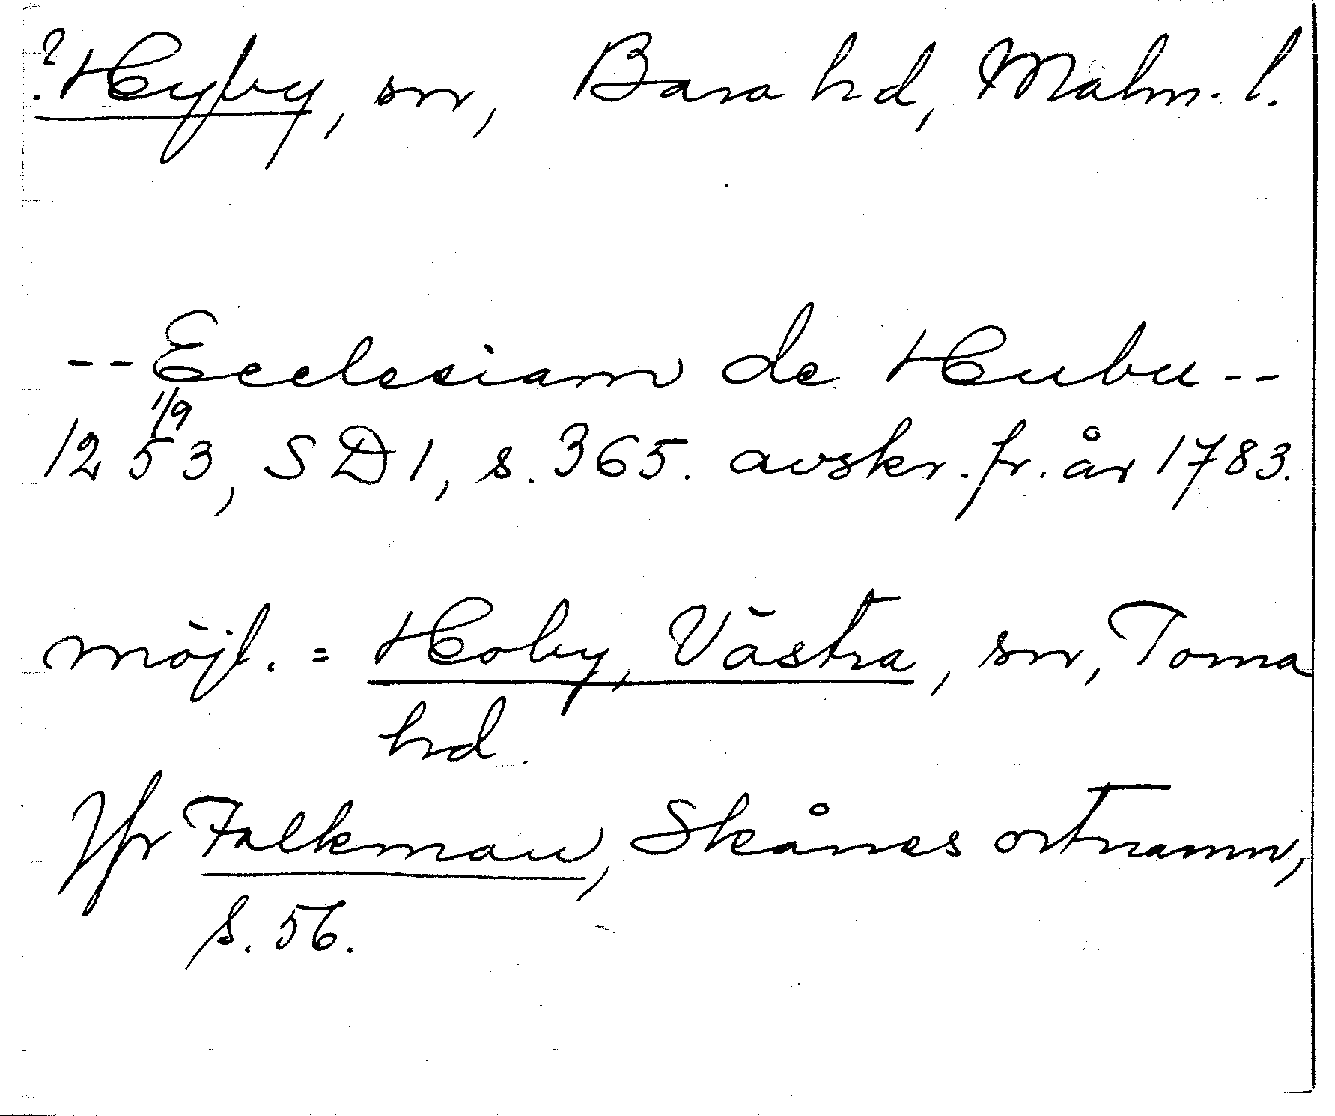 ?Hyby, sn, Bara hd, Malm. l.
--Ecclesiam de Hubu--
1/9
1253, SD1, s. 365. avskr. fr. år 1783.
möjl. = Hoby, Västra, sn, Torna
hd.
Jfr Falkman, Skånes ortnamn,
s. 56.